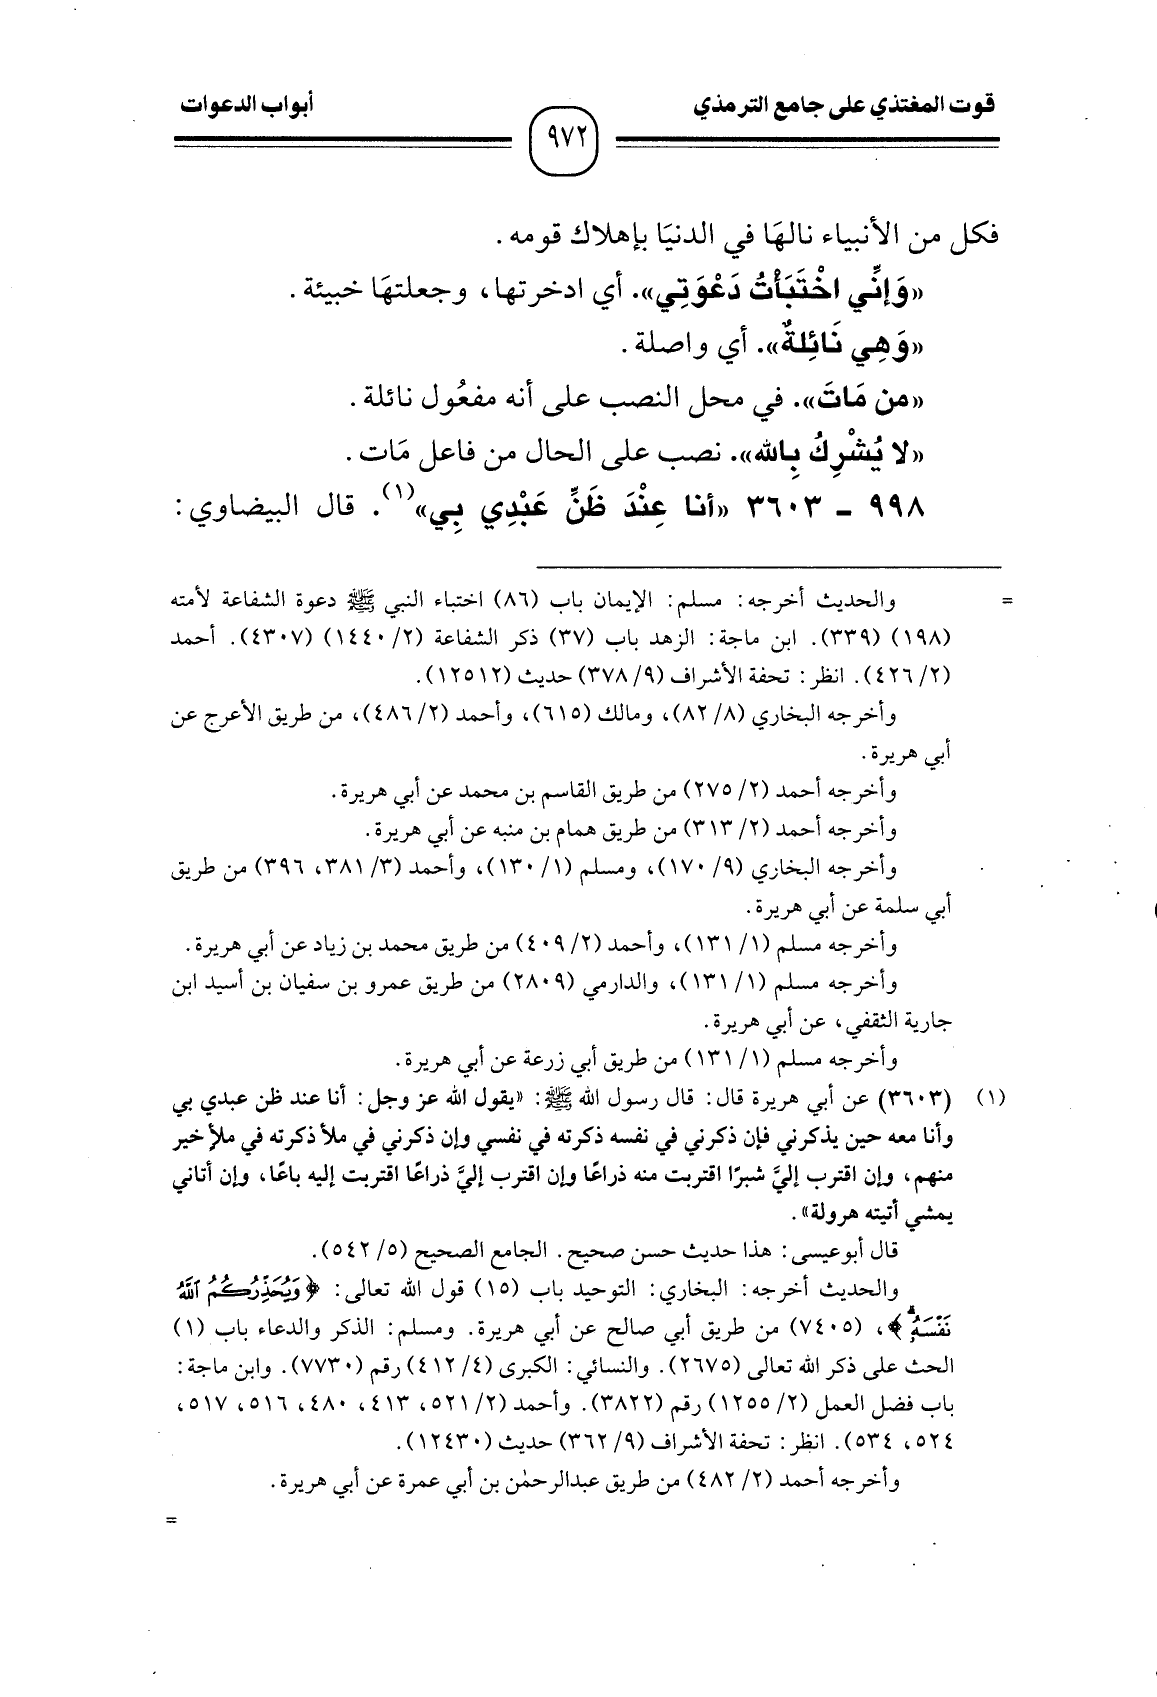 قوت المغتذي على جامع الترمذي
٩٧٢
أبواب الدعوات
فكل من الأنبياء نالهَا في الدنيَا بإهلاك قومه.
«وَإنِّي اخْتَبَأْتُ دَعْوَتِي». أي ادخرتها، وجعلتهَا خبيئة.
«وَهِي نَائِلَةٌ». أي واصلة.
«من مَاتَ». في محل النصب على أنه مفعُول نائلة.
«لا يُشْرِكُ بِالله». نصب على الحال من فاعل مَات.
٩٩٨ ـ ٣٦٠٣ «أنا عِنْدَ ظَنِّ عَبْدِي بِي»(١). قال البيضاوي:
= والحديث أخرجه: مسلم: الإيمان باب (٨٦) اختباء النبي ﷺ دعوة الشفاعة لأمته
(١٩٨) (٣٣٩). ابن ماجة: الزهد باب (٣٧) ذكر الشفاعة (٢/ ١٤٤٠) (٤٣٠٧). أحمد
(٢/ ٤٢٦). انظر: تحفة الأشراف (٩/ ٣٧٨) حديث (١٢٥١٢).
وأخرجه البخاري (٨/ ٨٢)، ومالك (٦١٥)، وأحمد (٢/ ٤٨٦)، من طريق الأعرج عن
أبي هريرة.
وأخرجه أحمد (٢/ ٢٧٥) من طريق القاسم بن محمد عن أبي هريرة.
وأخرجه أحمد (٢/ ٣١٣) من طريق همام بن منبه عن أبي هريرة.
وأخرجه البخاري (٩/ ١٧٠)، ومسلم (١/ ١٣٠)، وأحمد (٣/ ٣٨١، ٣٩٦) من طريق
أبي سلمة عن أبي هريرة.
وأخرجه مسلم (١/ ١٣١)، وأحمد (٢/ ٤٠٩) من طريق محمد بن زياد عن أبي هريرة.
وأخرجه مسلم (١/ ١٣١)، والدارمي (٢٨٠٩) من طريق عمرو بن سفيان بن أسيد ابن
جارية الثقفي، عن أبي هريرة.
وأخرجه مسلم (١/ ١٣١) من طريق أبي زرعة عن أبي هريرة.
(١) (٣٦٠٣) عن أبي هريرة قال: قال رسول الله ﷺ: «يقول الله عز وجل: أنا عند ظن عبدي بي
وأنا معه حين يذكرني فإن ذكرني في نفسه ذكرته في نفسي وإن ذكرني في ملأ ذكرته في ملأ خير
منهم، وإن اقترب إليَّ شبرًا اقتربت منه ذراعًا وإن اقترب إليَّ ذراعًا اقتربت إليه باعًا، وإن أتاني
يمشي أتيته هرولة».
قال أبوعيسى: هذا حديث حسن صحيح. الجامع الصحيح (٥/ ٥٤٢).
والحديث أخرجه: البخاري: التوحيد باب (١٥) قول الله تعالى: ﴿وَيُحَذِّرُكُمُ ٱللَّهُ
نَفْسَهُۥۗ﴾، (٧٤٠٥) من طريق أبي صالح عن أبي هريرة. ومسلم: الذكر والدعاء باب (١)
الحث على ذكر الله تعالى (٢٦٧٥). والنسائي: الكبرى (٤/ ٤١٢) رقم (٧٧٣٠). وابن ماجة:
باب فضل العمل (٢/ ١٢٥٥) رقم (٣٨٢٢). وأحمد (٢/ ٥٢١، ٤١٣، ٤٨٠، ٥١٦، ٥١٧،
٥٢٤، ٥٣٤). انظر: تحفة الأشراف (٩/ ٣٦٢) حديث (١٢٤٣٠).
وأخرجه أحمد (٢/ ٤٨٢) من طريق عبدالرحمٰن بن أبي عمرة عن أبي هريرة.
=